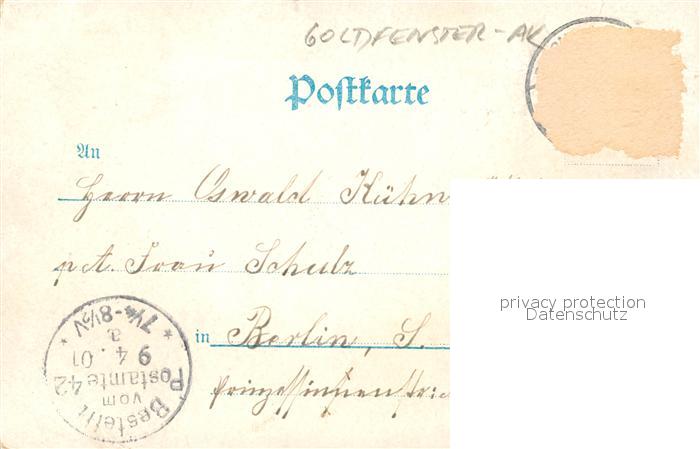 GOLDFENSTER-AK
Postkarte
An
Herrn Oswald Kühn
pct. Frau Schulz
in Berlin, S.
Prinzessinnenstr
privacy protection
Datenschutz
Bestellt
vom
Postamte 42
9 4. 01
a
7¼-8½V